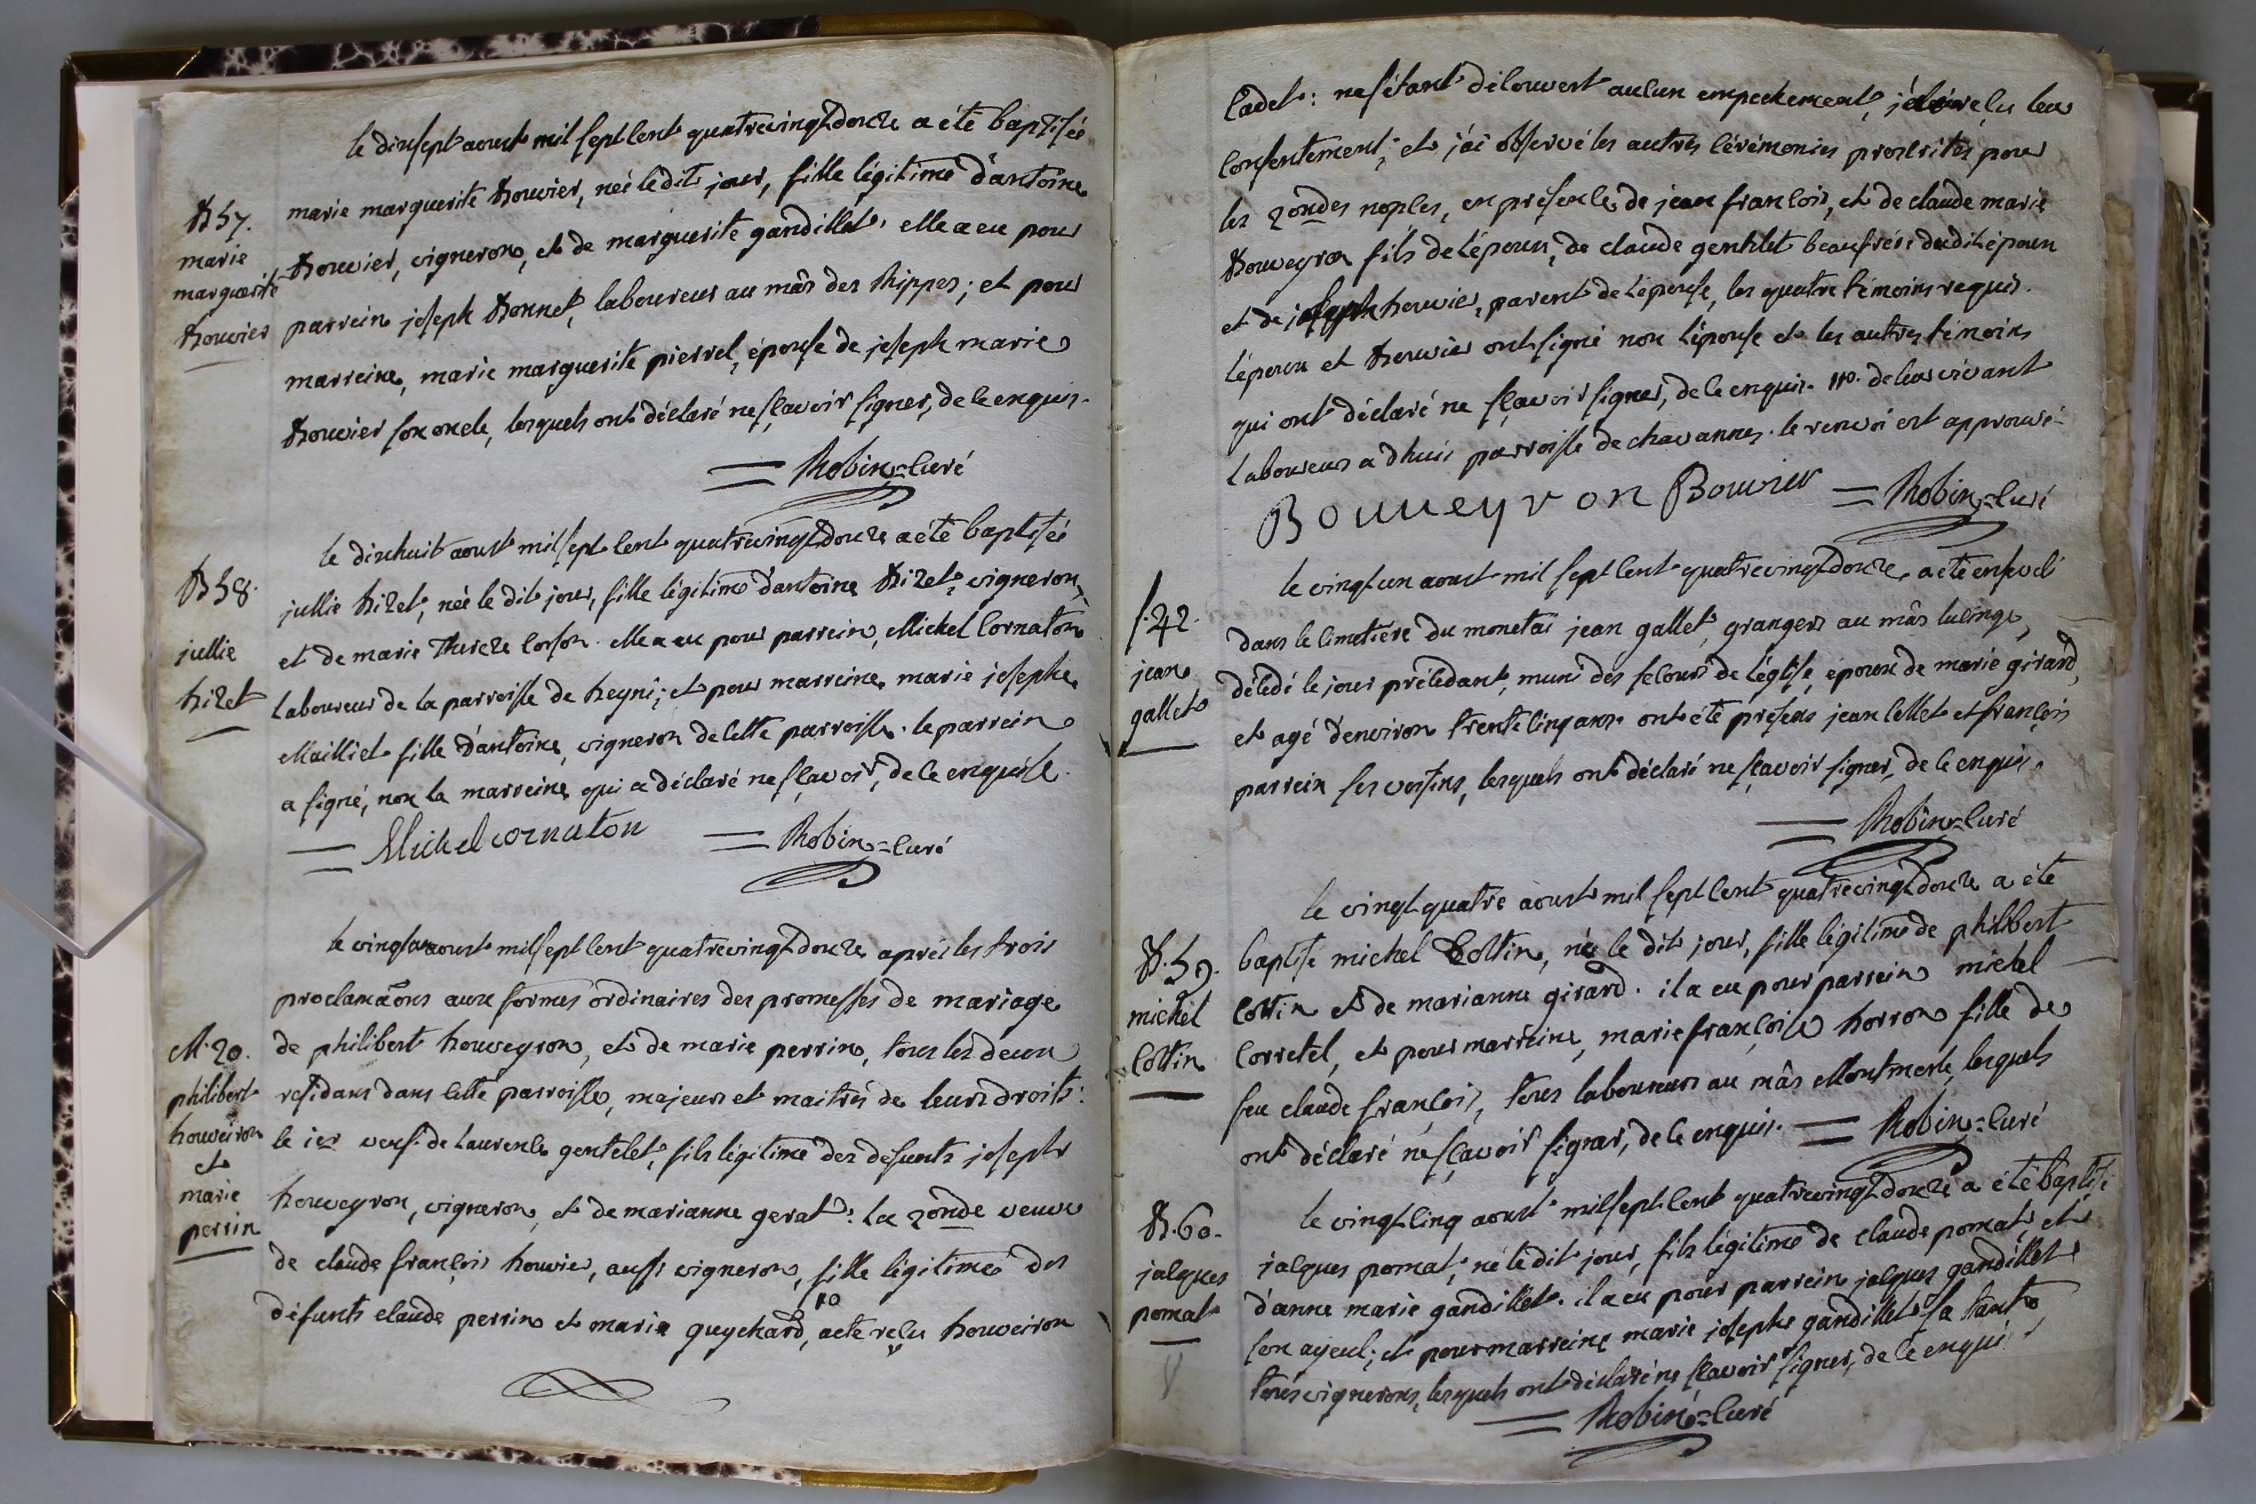 le dixsept aoust mil sept cent quatrevingtdouze a été baptisée
B 57.
marie
marguerite
bouvier
marie marguerite bouvier, née ledit jour, fille légitime d'antoine
bouvier, vigneron, et de marguerite gandillet. elle a eu pour
parrein joseph bonnet, laboureur au mâs des hippes; et pour
marreine, marie marguerite pierrel, épouse de joseph marie
bouvier son oncle, lesquels ont déclaré ne sçavoir signer, de ce enquis.
= Robin = curé
le dixhuit aoust mil sept cent quatrevingtdouze a été baptisée
B 58.
jullie
bizet
jullie bizet, née le dit jour, fille légitime d'antoine bizet, vigneron,
et de marie therèze corson. elle a eu pour parrein, Michel Cornaton
laboureur de la parroisse de beyni; et pour marreine, marie josephe
Mailliet fille d'antoine, vigneron de cette parroisse. le parrein
a signé, non la marreine qui a déclaré ne sçavoir, de ce enquise.
= Michel cornaton = Robin = curé
le vingt aoust mil sept cent quatrevingtdouze, après les trois
M. 20.
philibert
bouveiron
et
marie
perrin
proclamãons aux formes ordinaires des promesses de mariage
de philibert bouveyron, et de marie perrin, tous les deux
résidans dans cette parroisse, majeurs et maitres de leurs droits:
le ier veuf de Laurence gentelet, fils légitime des défunts joseph
bouveyron, vigneron, et de marianne gerat: la 2onde veuve
de claude françois bouvier, aussi vigneron, fille légitime des
défunts claude perrin et marie guychard, no acte relu bouveiron
Cadet: ne s'étant découvert aucun empechement, j'ai reçu leur
consentement; et j'ai observé les autres cérémonies prescrites pour
les 2ondes nopces, en présence de jean françois, et de claude marie
bouveyron fils de l'époux, de claude gentelet beaufrére dudit époux
et de joseph bouvier, parent de l'épouse, les quatre témoins requis.
l'époux et bouvier ont signé non l'épouse et les autres témoins
qui ont déclaré ne sçavoir signer, de ce enquis. no. de leur vivant
laboureur a dhuis parroisse de chavannes. le renvoi est approuvé.
Bouueyron Bouvier = Robin = curé
le vingtun aoust mil sept cent quatrevingtdouze, a été enseveli
s. 42.
jean
gallet
dans le cimetière du monetai jean gallet, granger au mâs lucinge,
décédé le jour précédant, muni des secours de l'église, époux de marie girard,
et agé d'environ trente cinq ans. ont été présens jean cellet et françois
parrein ses voisins, lesquels ont déclaré ne sçavoir signer, de ce enquis.
= Robin = curé
le vingt quatre aoust mil sept cent quatrevingtdouze a été
B. 59.
michel
Cottin
baptisé michel Cottin, né le dit jour, fille légitime de philibert
Cottin et de marianne girard. il a eu pour parrein michel
Corretel, et pour marreine, marie françoise borron fille de
feu claude françois, tous laboureurs au mâs Montmerle, lesquels
ont déclaré ne sçavoir signer, de ce enquis. = Robin = curé
le vingt cinq aoust mil sept cent quatrevingtdouze a été baptisé
B. 60.
jacques
pomat
jacques pomat, né le dit jour, fils légitime de claude pomat, et
d'anne marie gandillet. il a eu pour parrein jacques gandillet
son ayeul; et pour marreine marie josephe gandillet sa tante,
tous vignerons, lesquels ont déclaré ne sçavoir signer, de ce enquis
= Robin = curé